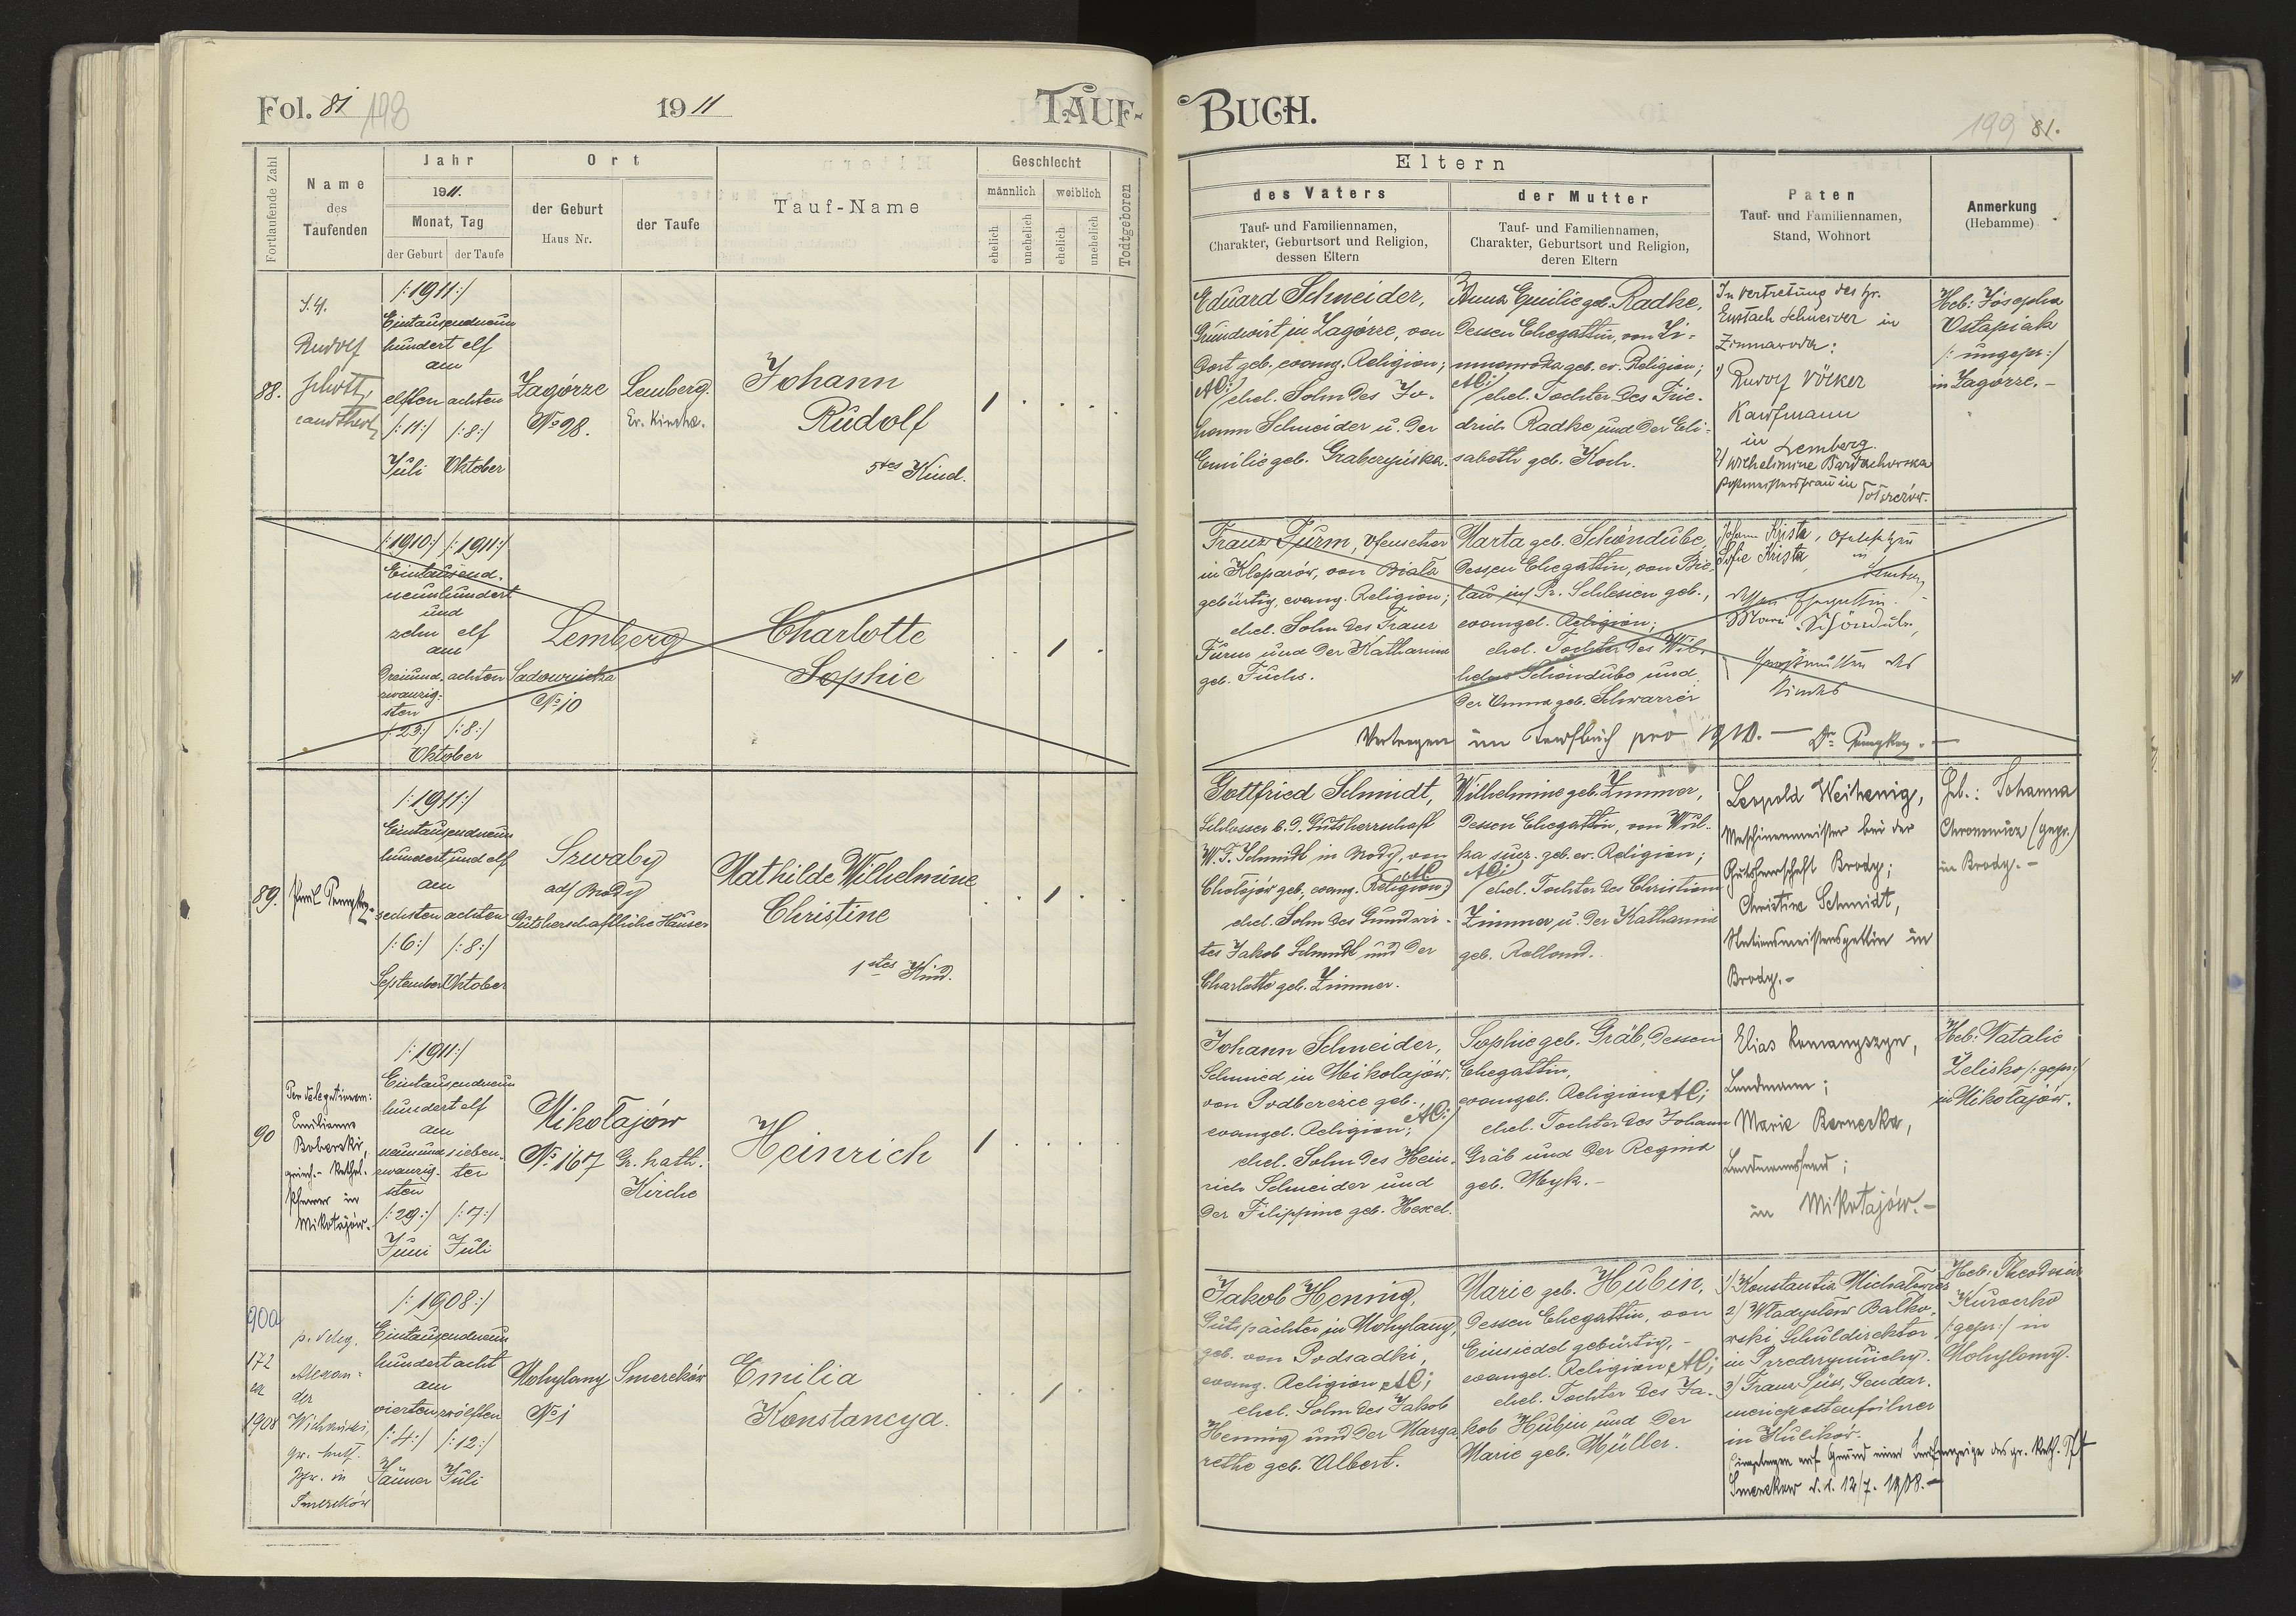 Fol. 81 198
1911
TAUF-
Fortlaufende Zahl
Name
des
Taufenden
Jahr
1911.
Monat, Tag
der Geburt
der Taufe
Ort
der Geburt
Haus Nr.
der Taufe
Tauf-Name
Geschlecht
männlich
weiblich
ehelich
unehelich
ehelich
unehelich
Todtgeboren
88.
Rudolf
/:1911:/
Eintausendneun
hundert elf
am
elften achten
/:11:/ /:8:/
Juli Oktober
Zagórze
No 98.
Lemberg.
Ev. Kirche.
Johann
Rudolf
5tes Kind.
/:1910:/ /:1911:/
Eintausend.
neunhundert
und
zehn elf
am
Dreiund- achten
zwanzig-
sten
/:23:/ /:8:/
Oktober
Lemberg
Sadownicka
No 10
Charlotte
Sophie
89.
/:1911:/
Eintausendneun
hundert und elf
am
sechsten achten
/:6:/ /:8:/
September Oktober
Szwaby
ad/ Brody
Gutsherschaftliche Häuser
Mathilde Wilhelmine
Christine
1stes Kind.
90
Emilianus
Boberski,
Pfarrer in
Mikołajów.
/:1911:/
Eintausendneun
hundert elf
am
neunund- sieben-
zwanzig- ter
sten
/:29:/ /:7:/
Juni Juli
Mikołajów
No 167
Gr. kath.
Kirche
Heinrich
90a
172
ex
1908
p. deleg.
Alexan-
der
in
Smereków
/:1908:/
Eintausendneun
hundert acht
am
vierten zwölften
/:4:/ /:12:/
Jänner Juli
Mohylany
No 1
Smereków
Emilia
Konstancya.
BUCH.
199 81.
Eltern
des Vaters
Tauf- und Familiennamen,
Charakter, Geburtsort und Religion,
dessen Eltern
der Mutter
Tauf- und Familiennamen,
Charakter, Geburtsort und Religion,
deren Eltern
Paten
Tauf- und Familiennamen,
Stand, Wohnort
Anmerkung
(Hebamme)
Eduard Schneider,
Grundwirt in Zagórze, von
Dort geb. evang. Religion;
AC;
ehel. Sohn des Jo-
hann Schneider u. der
Emilie geb.
Anna Emilie geb. Radke,
Dessen Ehegattin, von
geb. ev. Religion;
AC;
ehel. Tochter des Frie-
drich Radke und der Eli-
sabeth geb. Koch.
In Vertretung des Hr.
Eustach Schneider in
Zimnawoda:
1) Rudolf Völker
Kaufmann
in Lemberg.
2) Wilhelmine
Postmeistersfrau in
Heb: Josepha
Ostapiak
/: ungepr:/
in Zagórze.-
Franz Turm,
in Kleparów, von Biala
gebürtig, evang. Religion;
ehel. Sohn des Franz
Turm und der Katharina
geb. Fuchs.
Marta geb. Schöndube,
Dessen Ehegattin, von
in Pr. Schlesien geb.,
evangel. Religion;
ehel. Tochter des Wil-
helm Schöndube und
der Emma geb. Schwarzer
Johann Krista,
in
Sofie Krista
Lemberg
dessen Ehegattin.
Großmutter des
Kindes
im Taufbuch pro 1910.-
Gottfried Schmidt,
Schlosser b. d. Gutsherrschaft
W. F. Schmidt in Brody, von
Chołojów geb, evang. Religion AC
ehel. Sohn des Grundwir-
tes Jakob Schmidt und der
Charlotte geb. Zimmer.
Wilhelmine geb. Zimmer,
Dessen Ehegattin, von Wul-
ka geb. ev. Religion;
AC;
ehel. Tochter des Christian
Zimmer u. der Katharina
geb. Rolland.
Leopold
Maschinenmeister bei der
Gutsherrschaft Brody;
Christine Schmidt,
in
Brody.-
Heb.: Johanna
(gepr.)
in Brody.-
Johann Schneider,
Schmied in Mikołajów,
von Podberezce geb.,
evangel. Religion; AC;
ehel. Sohn des Hein-
rich Schneider und
der Filippine geb. Hexel.
Sophie geb. Gräb, Dessen
Ehegattin,
evangel. Religion AC;
ehel. Tochter des Johann
Gräb und der Regina
geb. Myk.-
Elias
Landmann;
Marie
Landmannsfrau;
in Mikołajów.-
Heb: Natalie
Zelisko /:gepr:/
in Mikołajów.
Jakob Hennig,
Gutspächter in Mohylany,
geb. von Podsadki,
evang. Religion AC;
ehel. Sohn des Jakob
Hennig und der Marga-
rethe geb. Albert.
Marie geb. Hubin,
Dessen Ehegattin, von
Einsiedel gebürtig,-
evangel. Religion AC;
ehel. Tochter des Ja-
kob Hubin und der
Marie geb. Müller.
1) Konstantia
2) Władysław Balko-
wski, Schuldirektor
in
3) Franz Süss, Gendar-
merieposten
in Kulików.
auf Grund einer des gr. kath.
Smereków d. d. 12/7. 1908.-
Heb: Theodosia
/:gepr:/ in
Mohylany.